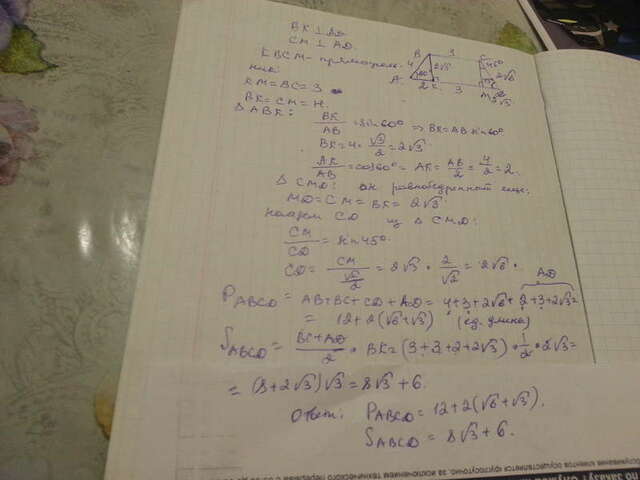 BK ⊥ AD.
CM ⊥ AD.
KBCM - прямоуголь-
ник.
KM = BC = 3
BK = CM = H.
Δ ABK:
BK/AB = sin 60° ⇒ BK = AB sin 60°
BK = 4 · √3/2 = 2√3
AK/AB = cos 60° = AK = AB/2 = 4/2 = 2.
Δ CMD: он равнобедренный
MD = CM = BK = 2√3
найдем CD из Δ CMD:
CM/CD = sin 45°
CD = CM/(√2/2) = 2√3 · 2/√2 = 2√6.
AD
P ABCD = AB + BC + CD + AD = 4 + 3 + 2√6 + 2 + 3 + 2√3 =
= 12 + 2(√6 + √3) (ед. длины)
S ABCD = (BC + AD)/2 · BK = (3 + 3 + 2 + 2√3) · 1/2 · 2√3 =
= (8 + 2√3)√3 = 8√3 + 6.
Ответ: P ABCD = 12 + 2(√6 + √3).
S ABCD = 8√3 + 6.
B 3 C
4 2√3 2√6
A 60° 2 K 3 M 2√3